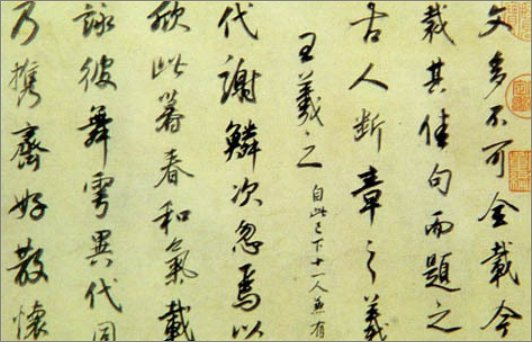 文多不可全載今
裁其佳句而題之
古人斷章之義
王羲之 自此已下十一人兼有
代謝鱗次忽焉以
欣此暮春和氣載
詠彼舞雩異代同
乃携齊好散懷